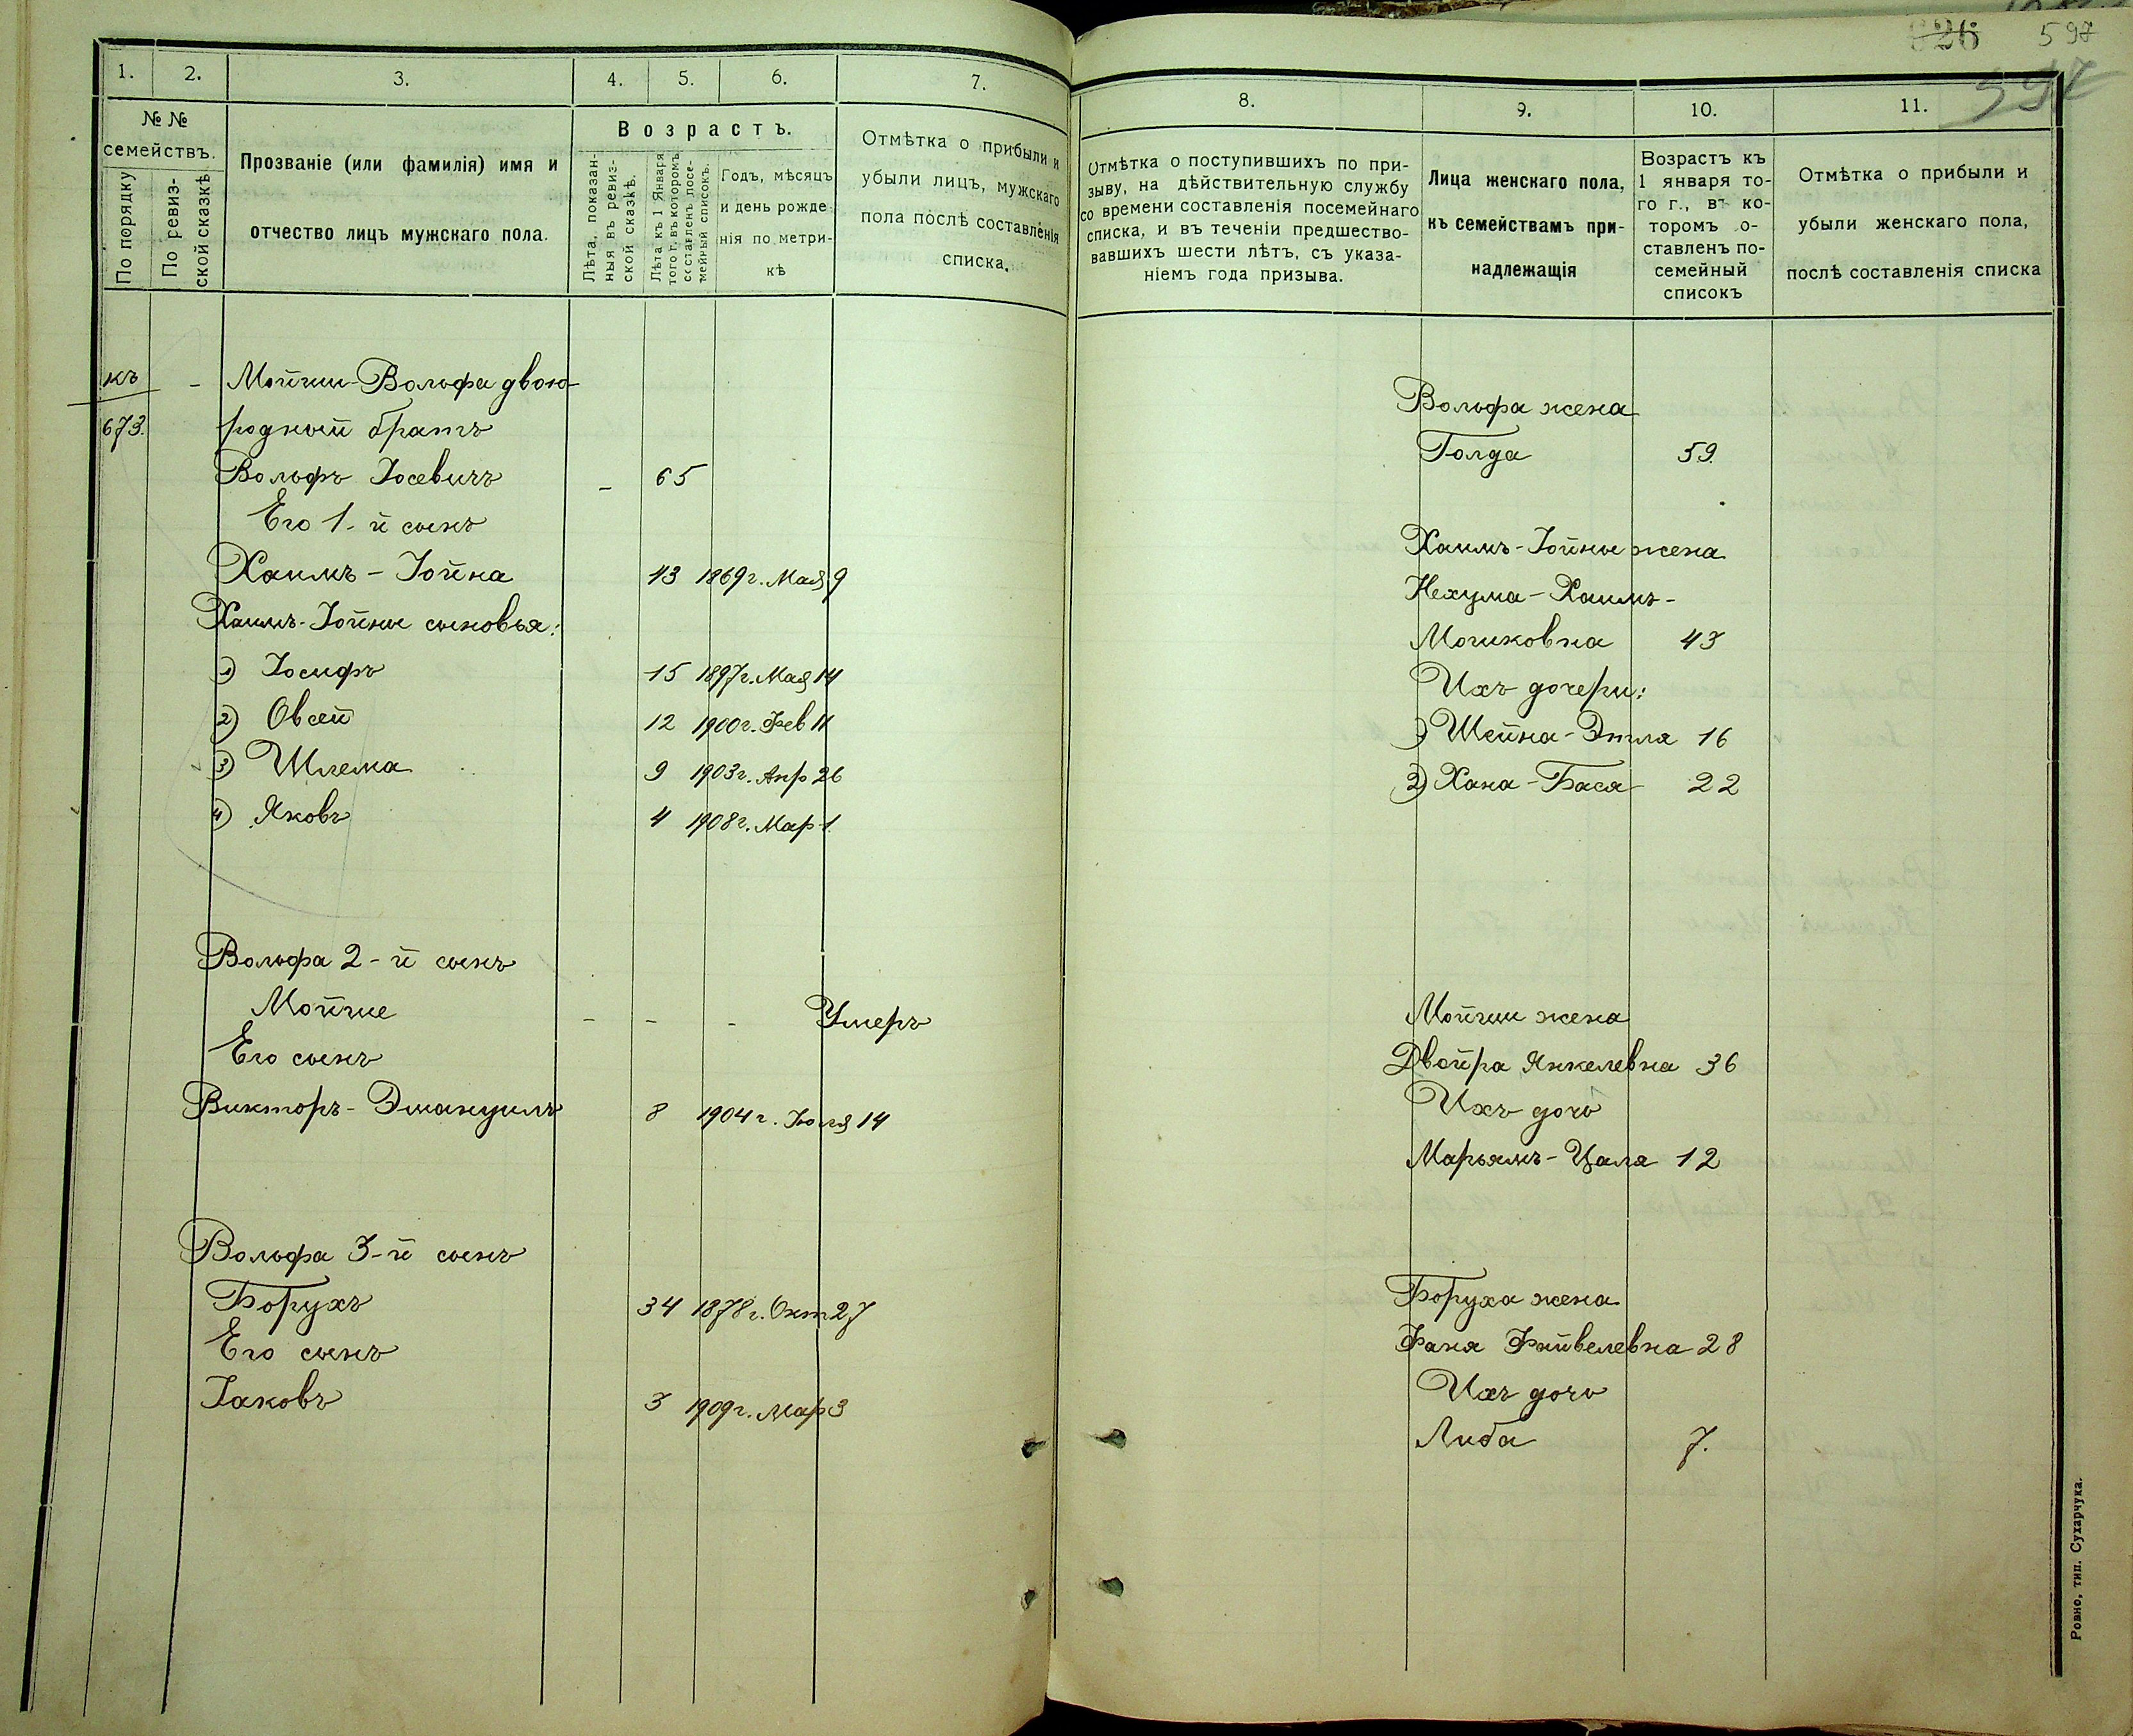 626 597
597
1. 2. 3. 4. 5. 6. 7.
№ №
семействъ.
По порядку
По ревиз-
ской сказкѣ
Прозваніе (или фамилія) имя и
отчество лицъ мужскаго пола.
Возрастъ.
Лѣта, показан-
ныя въ ревиз-
ской сказкѣ.
Лѣта къ 1 Января
того г. въ которомъ
составленъ посе-
мейный списокъ.
Годъ, мѣсяцъ
и день рожде
нія по метри-
кѣ
Отмѣтка о прибыли и
убыли лицъ, мужскаго
пола послѣ составленія
списка.
къ - Мойши-Вольфа двою-
673. родный братъ
Вольфъ Іосевичъ - 65
Его 1-й сынъ
Хаимъ-Іойна 43 1869 г. Мая 9
Хаимъ-Іойны сыновья:
1) Іосифъ 15 1897 г. Мая 14
2) Овсей 12 1900 г. Фев 11
3) Шлема 9 1903 г. Апр 26
4) Яковъ 4 1908 г. Мар 1.
Вольфа 2-й сынъ
Мойше - - - Умеръ
Его сынъ
Викторъ-Эмануилъ 8 1904 г. Іюля 14
Вольфа 3-й сынъ
Борухъ 34 1878 г. Окт 27
Его сынъ
Іаковъ 3 1909 г. Мар 3
8. 9. 10. 11.
Отмѣтка о поступившихъ по при-
зыву, на дѣйствительную службу
со времени составленія посемейнаго
списка, и въ теченіи предшество-
вавшихъ шести лѣтъ, съ указа-
ніемъ года призыва.
Лица женскаго пола,
къ семействамъ при-
надлежащія
Возрастъ къ
1 января то-
го г., въ ко-
торомъ о-
ставленъ по-
семейный
списокъ
Отмѣтка о прибыли и
убыли женскаго пола,
послѣ составленія списка
Вольфа жена
Голда 59.
Хаимъ-Іойны жена
Нехума-Хаимъ-
Мошковна 43
Ихъ дочери:
1) Шейна-Этля 16
2) Хана-Бася 22
Мойши жена
Двойра Янкелевна 36
Ихъ дочь
Марьямъ-Цаля 12
Боруха жена
Фаня Файвелевна 28
Ихъ дочь
Либа 7.
Ровно, тип. Сухарчука.